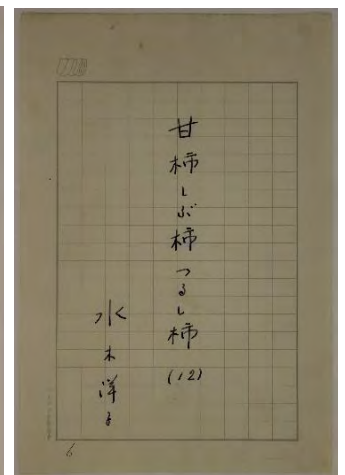 甘柿しぶ柿つるし柿
(12)
水木洋子
6